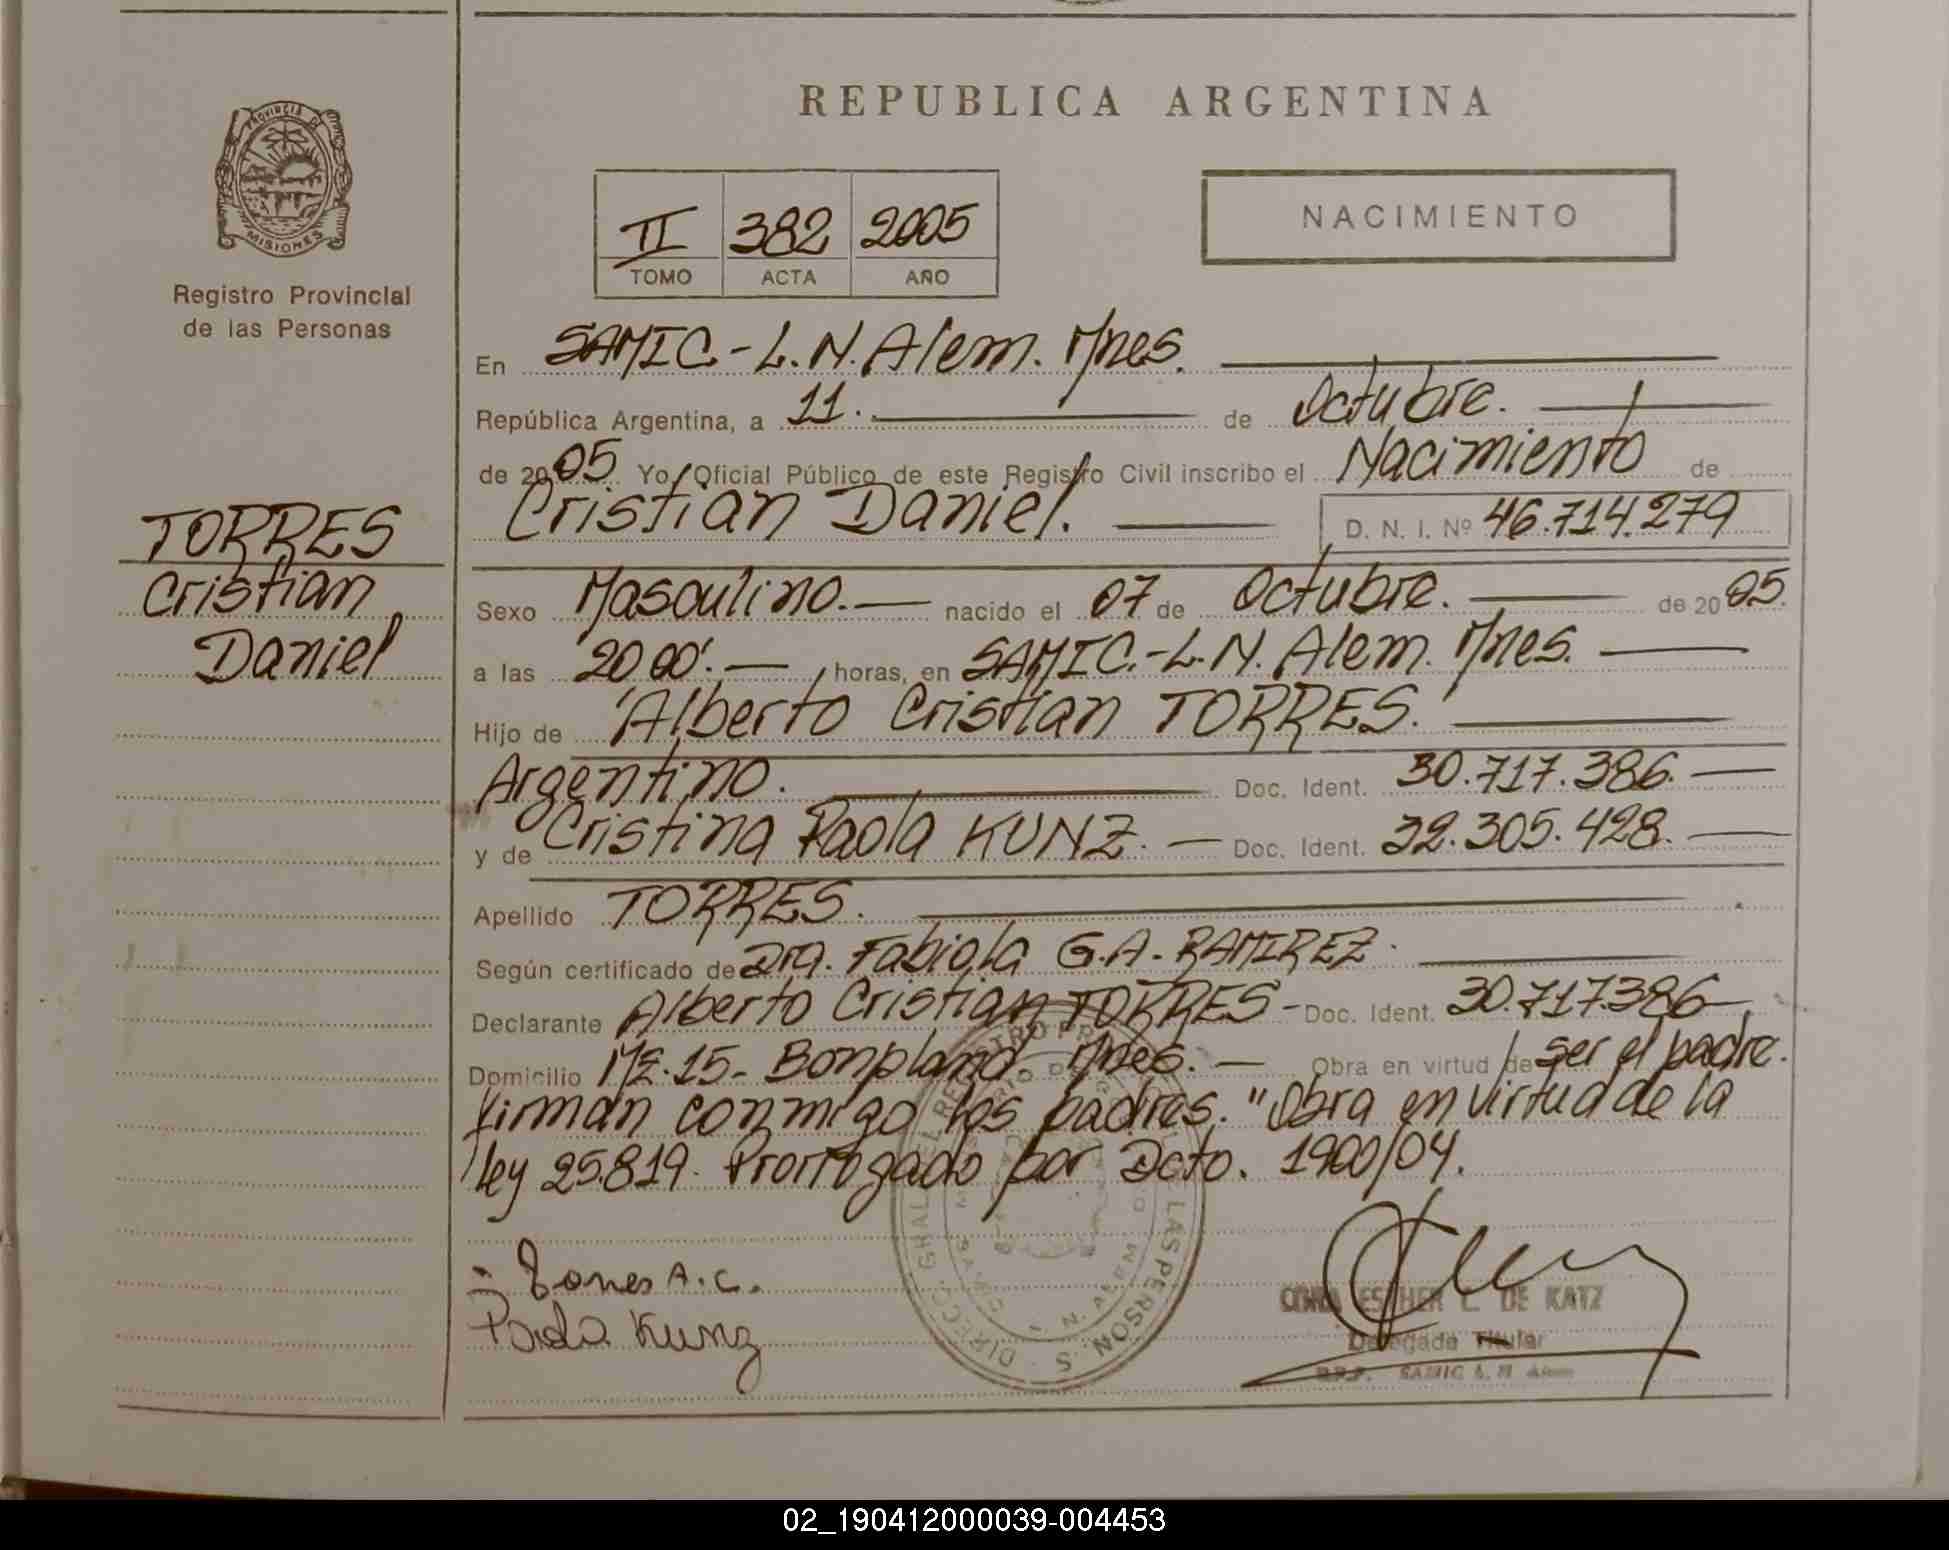 REPUBLICA ARGENTINA
PROVINCIA DE
MISIONES
Registro Provincial
de las Personas
TORRES
Cristian
Daniel
II 382 2005
TOMO ACTA AÑO
NACIMIENTO
En SAMIC-L.N. Alem. Mnes.
República Argentina, a 11. de Octubre.
de 2005 Yo, Oficial Público de este Registro Civil inscribo el Nacimiento de
Cristian Daniel. D. N. I. Nº 46.714.279
Sexo Masculino. nacido el 07 de Octubre. de 2005.
a las 20 00'. horas, en SAMIC.-L.N. Alem. Mnes.
Hijo de Alberto Cristian TORRES.
Argentino. Doc. Ident. 30.717.386.
y de Cristina Paola KUNZ. Doc. Ident. 32.305.428.
Apellido TORRES.
Según certificado de Dra. Fabiola G.A. RAMIREZ.
Declarante Alberto Cristian TORRES - Doc. Ident. 30.717.386
Domicilio Mz.15- Bonpland. Mnes. Obra en virtud de ser el padre.
firman conmigo los padres. "Obra en virtud de la
ley 25.819. Prorrogado por Dcto. 1900/04.
Torres A.C.
Paola Kunz
ESTHER L. DE KATZ
Delegada Titular
SAMIC L. N. Alem
02_190412000039-004453